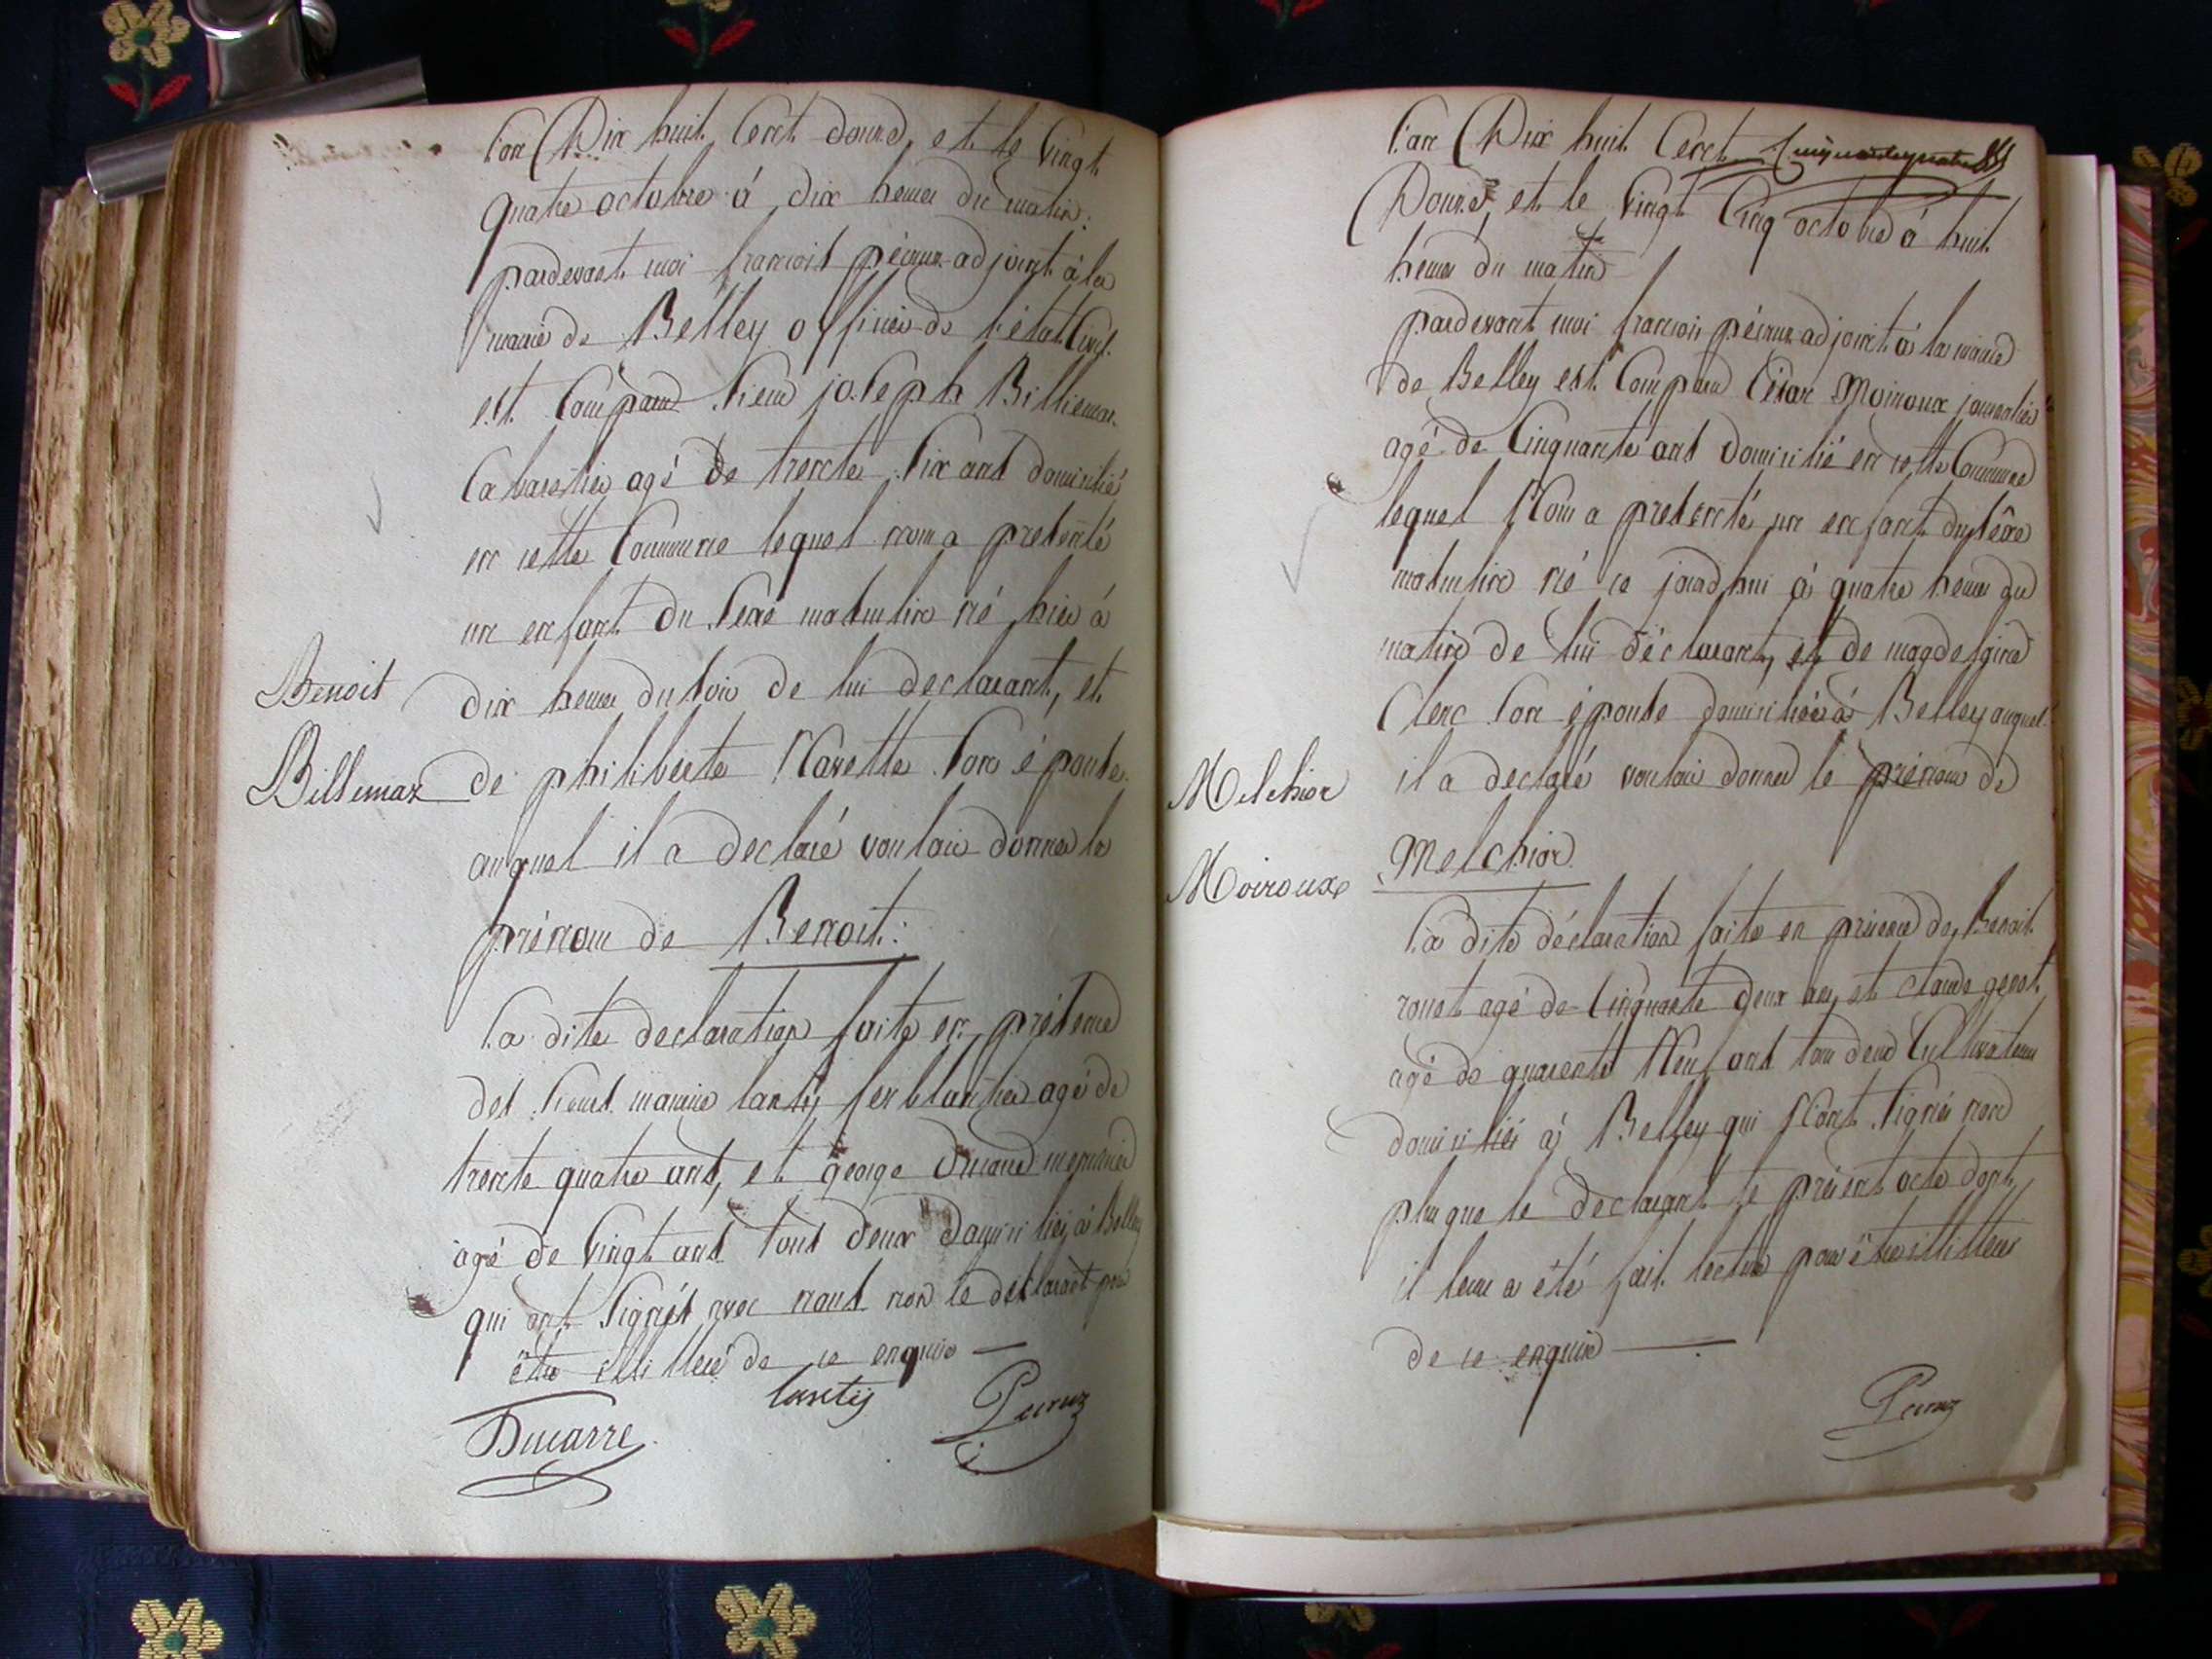 l'an Dix huit Cent douze, et le vingt
quatre octobre à dix heures du matin.
pardevant moi francois péruz adjoint à la
mairie de Bélley officier de l'état Civil
est Comparu sieur joseph Billiemaz
Cabaretier agé de trente six ans domicilié
en cette Commune lequel nous a presenté
un enfant du sexe masculin né hier à
Benoit
Billiemaz
dix heures du soir de lui declarant, et
de philiberte Navette son épouse
auquel il a declaré vouloir donner le
prénom de Benoit:
la dite declaration faite en présence
des sieurs maurice lantéy ferblantier agé de
trente quatre ans, et george ducarre menuisier
agé de vingt ans tous deux domiciliés à Belley
qui ont signés avec nous non le déclarant pour
être illitteré de ce enquis
Ducarre
lantéy
Peruz
l'an Dix huit Cent
Douze, et le vingt Cinq octobre à huit
heures du matin
pardevant moi francois péruz adjoint à la mairie
de Belley est Comparu César Moiroux journalier
agé de Cinquante ans domicilié en cette Commune
lequel Nous a presenté un enfant du sexe
masculin né ce jourd'hui à quatre heures du
matin de lui déclarant, et de magdelaine
Clerc son épouse domiciliés à Belley auquel
il a declaré vouloir donner le prénom de
Melchior
Moiroux
Melchior
la dite déclaration faite en présence de Benoit
rouet agé de Cinquante deux ans et claude genot
agé de quarente Neuf ans tous deux Cultivateurs
domiciliés à Belley qui N'ont signés non
plus que le declarant le présent acte dont
il leur a été fait lecture pour être illitterés
de ce enquis
Peruz